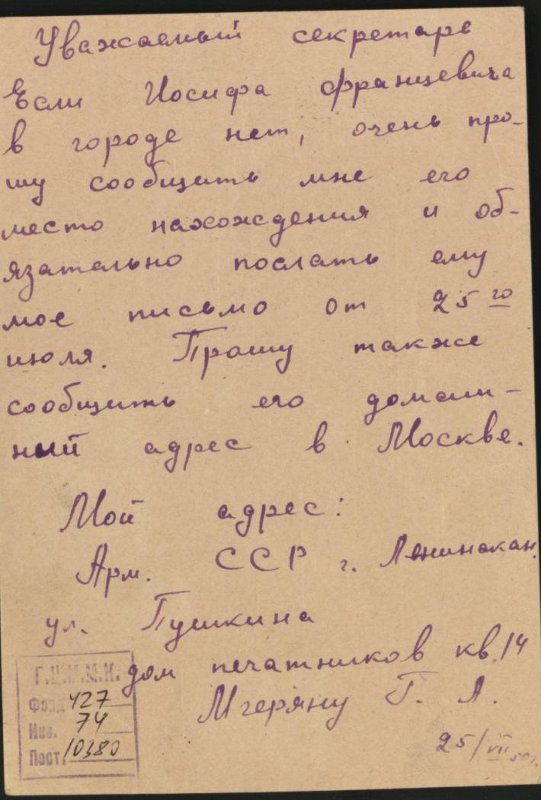 Уважаемый секретарь
Если Иосифа Францевича
в городе нет, очень про-
шу сообщить мне его
место нахождения и об-
язательно послать ему
мое письмо от 25го
июля. Прошу также
сообщить его домаш-
ний адрес в Москве.
Мой адрес:
Арм. ССР г. Ленинакан.
ул. Пушкина
дом печатников кв. 14
Мгеряну Г. Л.
25/VII 50г.
Г.Ц.М.М.К.
Фонд 427
Инв. 74
Пост. 10380